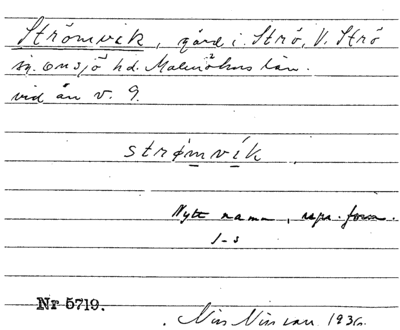 Strömvik, gård i Strö, V. Strö
sn. Onsjö hd. Malmöhus län.
vid ån v. 9.
strømvík.
Nytt namn, rspr. form.
1-s
Nr 5719.
Nils Nilsson 1936.